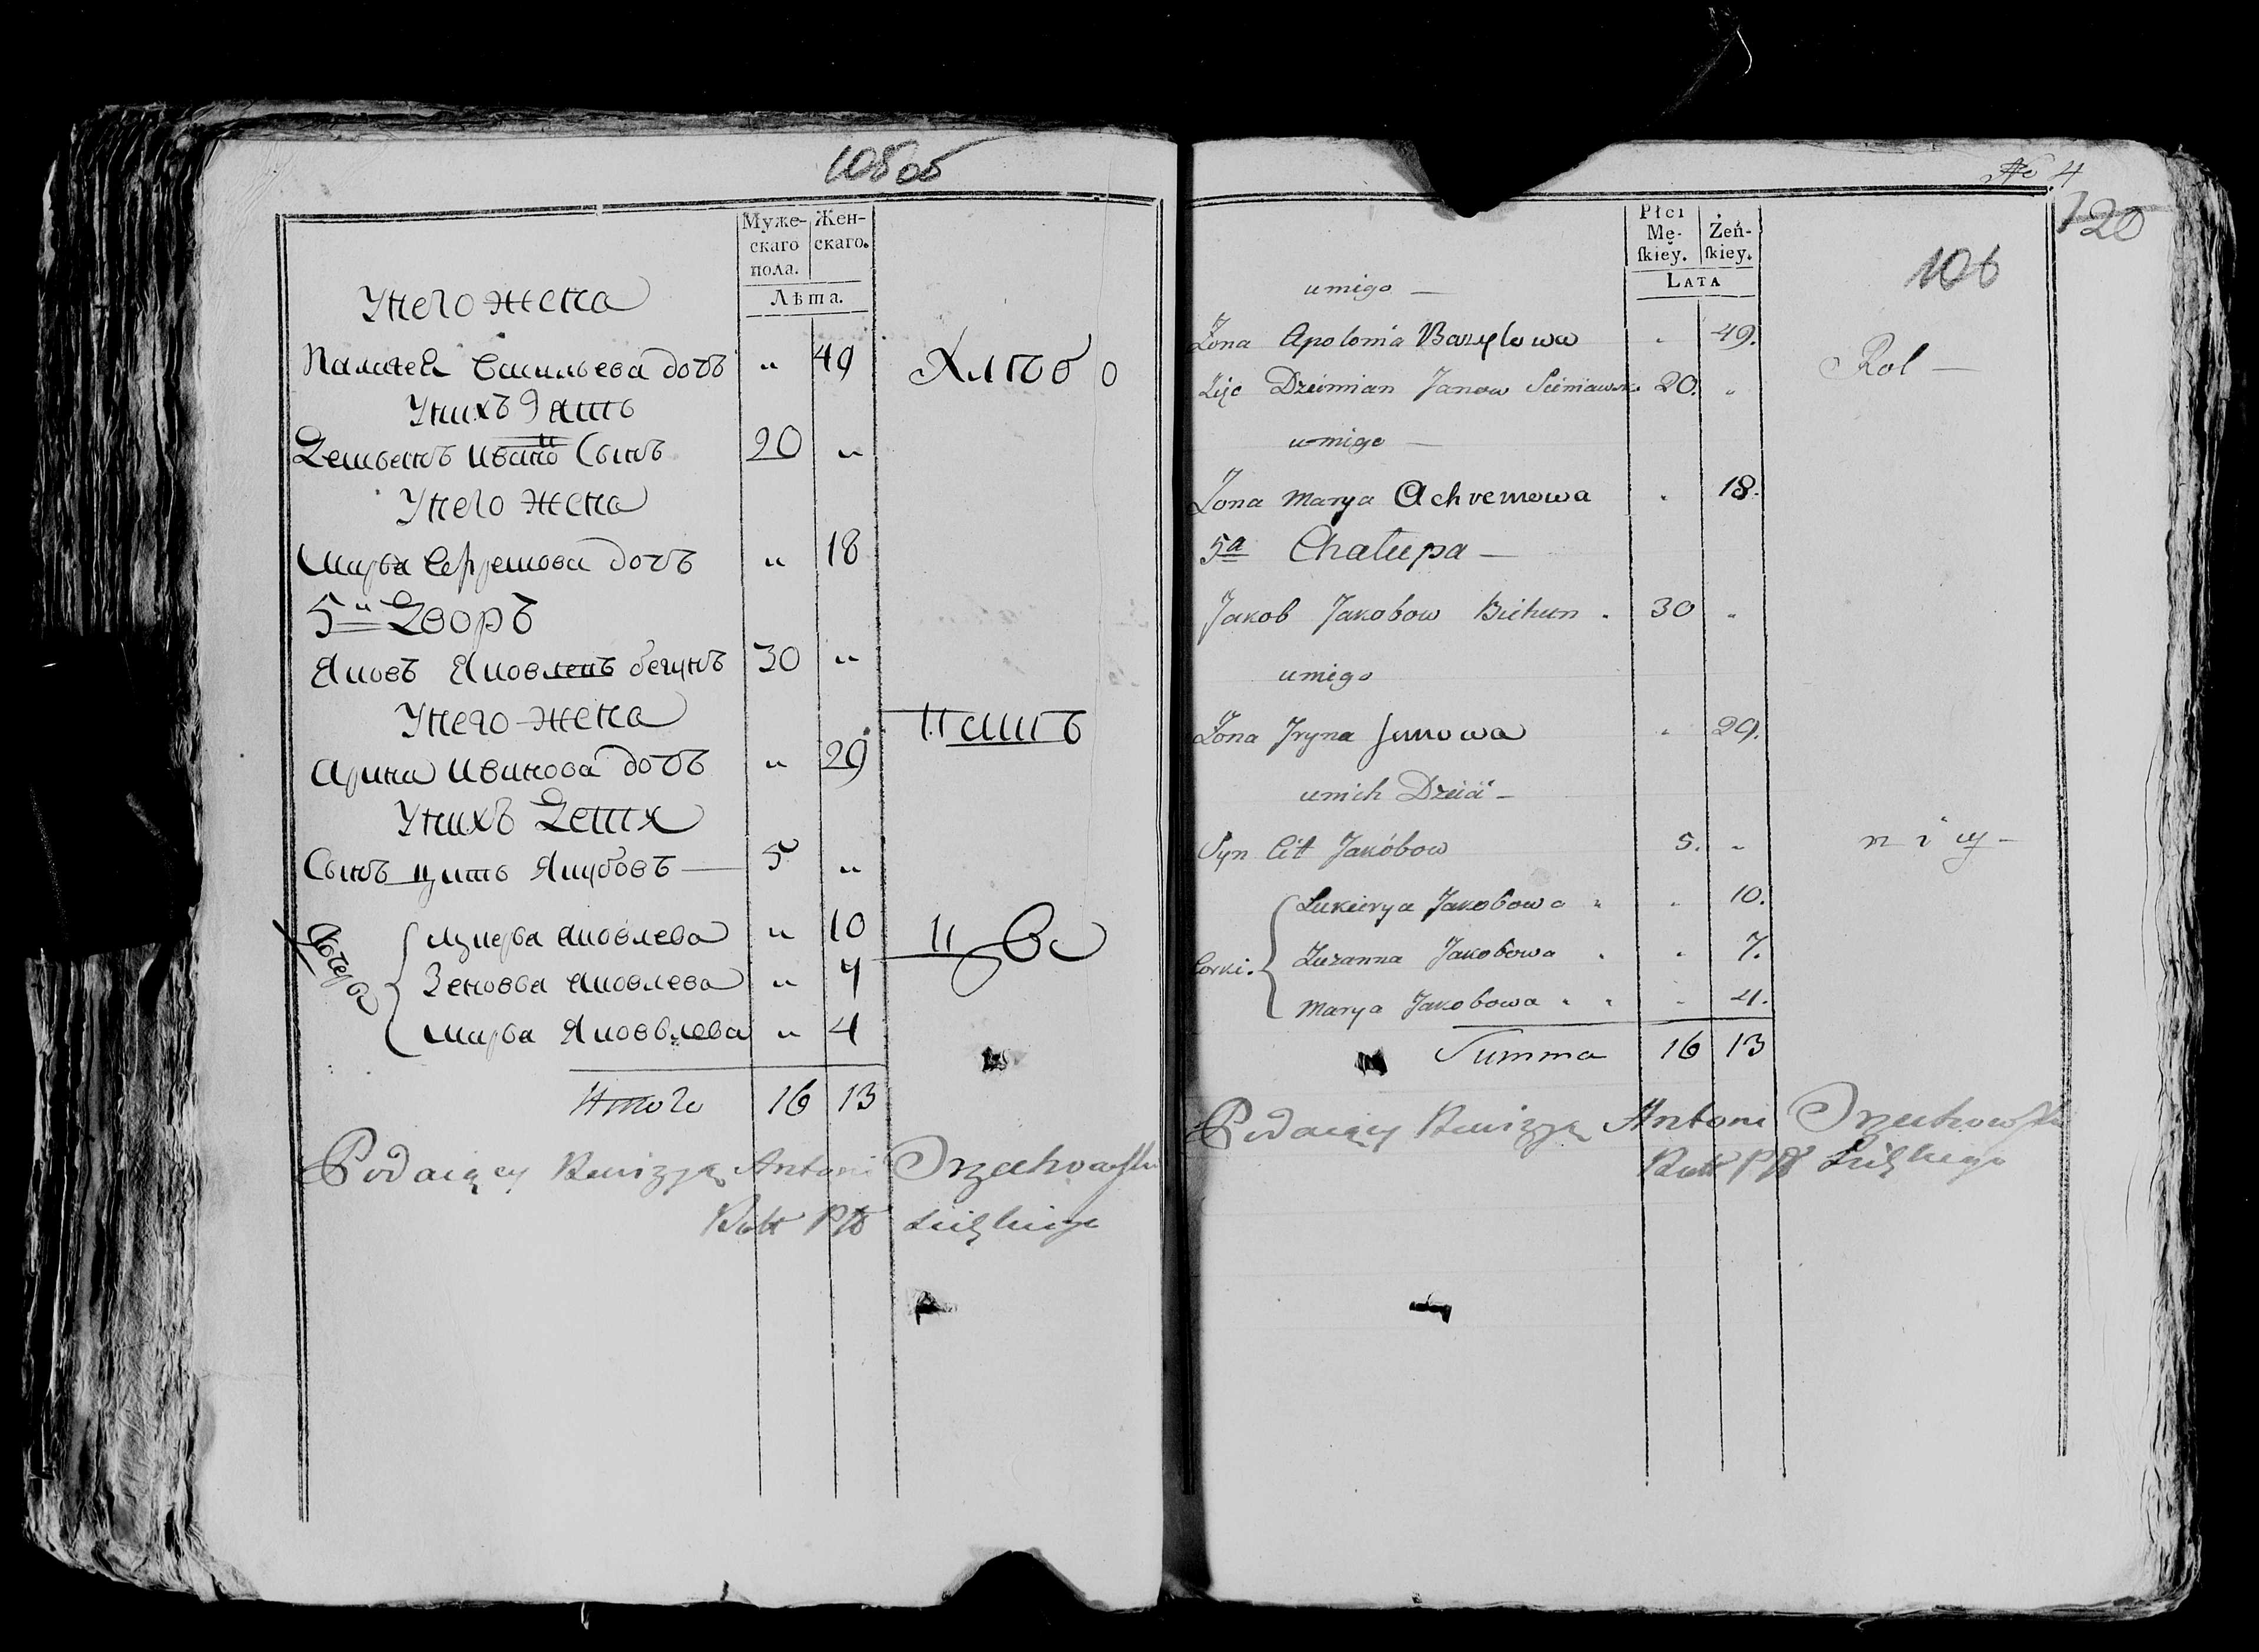 105 об
Муже-
скаго
пола.
Жен-
скаго.
Лѣта.
Унего жена
Палагея Васильева дочь " 49
Унихъ дѣти
Демьянъ Ивановъ Сынъ 20 "
Унего Жена
Марья Ефремова дочь " 18
5й Дворъ
Яковъ Яковлевъ бегунъ 30 "
Унего жена
Арина Иванова дочь " 29
Унихъ Дети
Сынъ цитъ Якубовъ — 5 "
Дочеря
Луцерья Яковлева " 10
Зеновья Яковлева " 7
Марья Яковлева " 4
Итого 16 13
Хлѣбо
паш
цы
Podaiący Rewizyą Antoni Orzechowski
Rott Ptt
№ 4
120
106
Płci
Mę-
ſkiey.
Żeń-
ſkiey.
LATA
uniego —
Żona Apolonia Bazylowa " 49.
Dziemian Janow 20. "
uniego —
Żona Marya Achremowa " 18.
5a Chałupa —
Jakob Jakobow Biehun 30 "
uniego
Żona Jryna Janowa " 29.
unich Dzieci —
Syn Cit Jakóbow 5. "
Corki.
Lukierya Jakobowa " 10.
Zuzanna Jakobowa " 7.
Marya Jakobowa " 4.
Summa 16 13
Rol —
nicy —
Podaiący Rewizyą Antoni Orzechowski
Rott Ptt